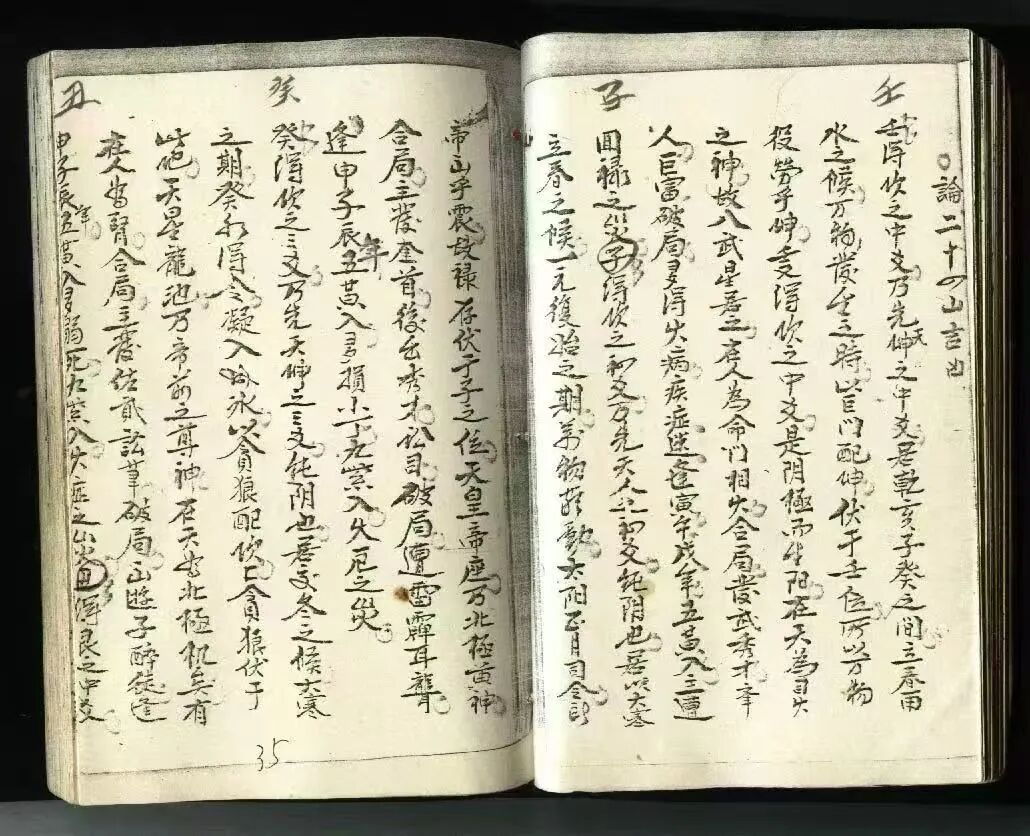 論二十四山吉凶
壬
壬得坎之中爻乃先天坤之中爻居乾亥子癸之間立春雨
水之候万物發生之時皆以配坤伏于壬位所以万物
役勞乎坤爻得坎之中爻是阴極而生阳在天為
之神故八武星居之在人為命门相火合局發武秀才
人巨富破局多得火病疾症逢寅午戌年五黄入主遭
子
回禄之災子得坎之初爻乃先天之初爻純阴也居以大寒
立春之候一元復始之期萬物萌動太阳正月司令
帝出乎震故禄存伏于子之位天皇帝座乃北極黄神
合局主發奎首後出秀才公司破局遭雷霹耳聾
逢申子辰年五黄入多損小丁九紫入火厄之災
癸
癸得坎之三爻乃先天坤之三爻純阴也居交冬之候大寒
之期癸水得令凝入冰以貪狼配坎上貪狼伏于
此地天星龍池乃帝前之尊神在天為北極机矣有
在人為腎合局主發佐貳訟筆破局出遊子醉徒逢
丑
申子辰年五黄入多弱死九紫入火症之山災丑得艮之中爻
35